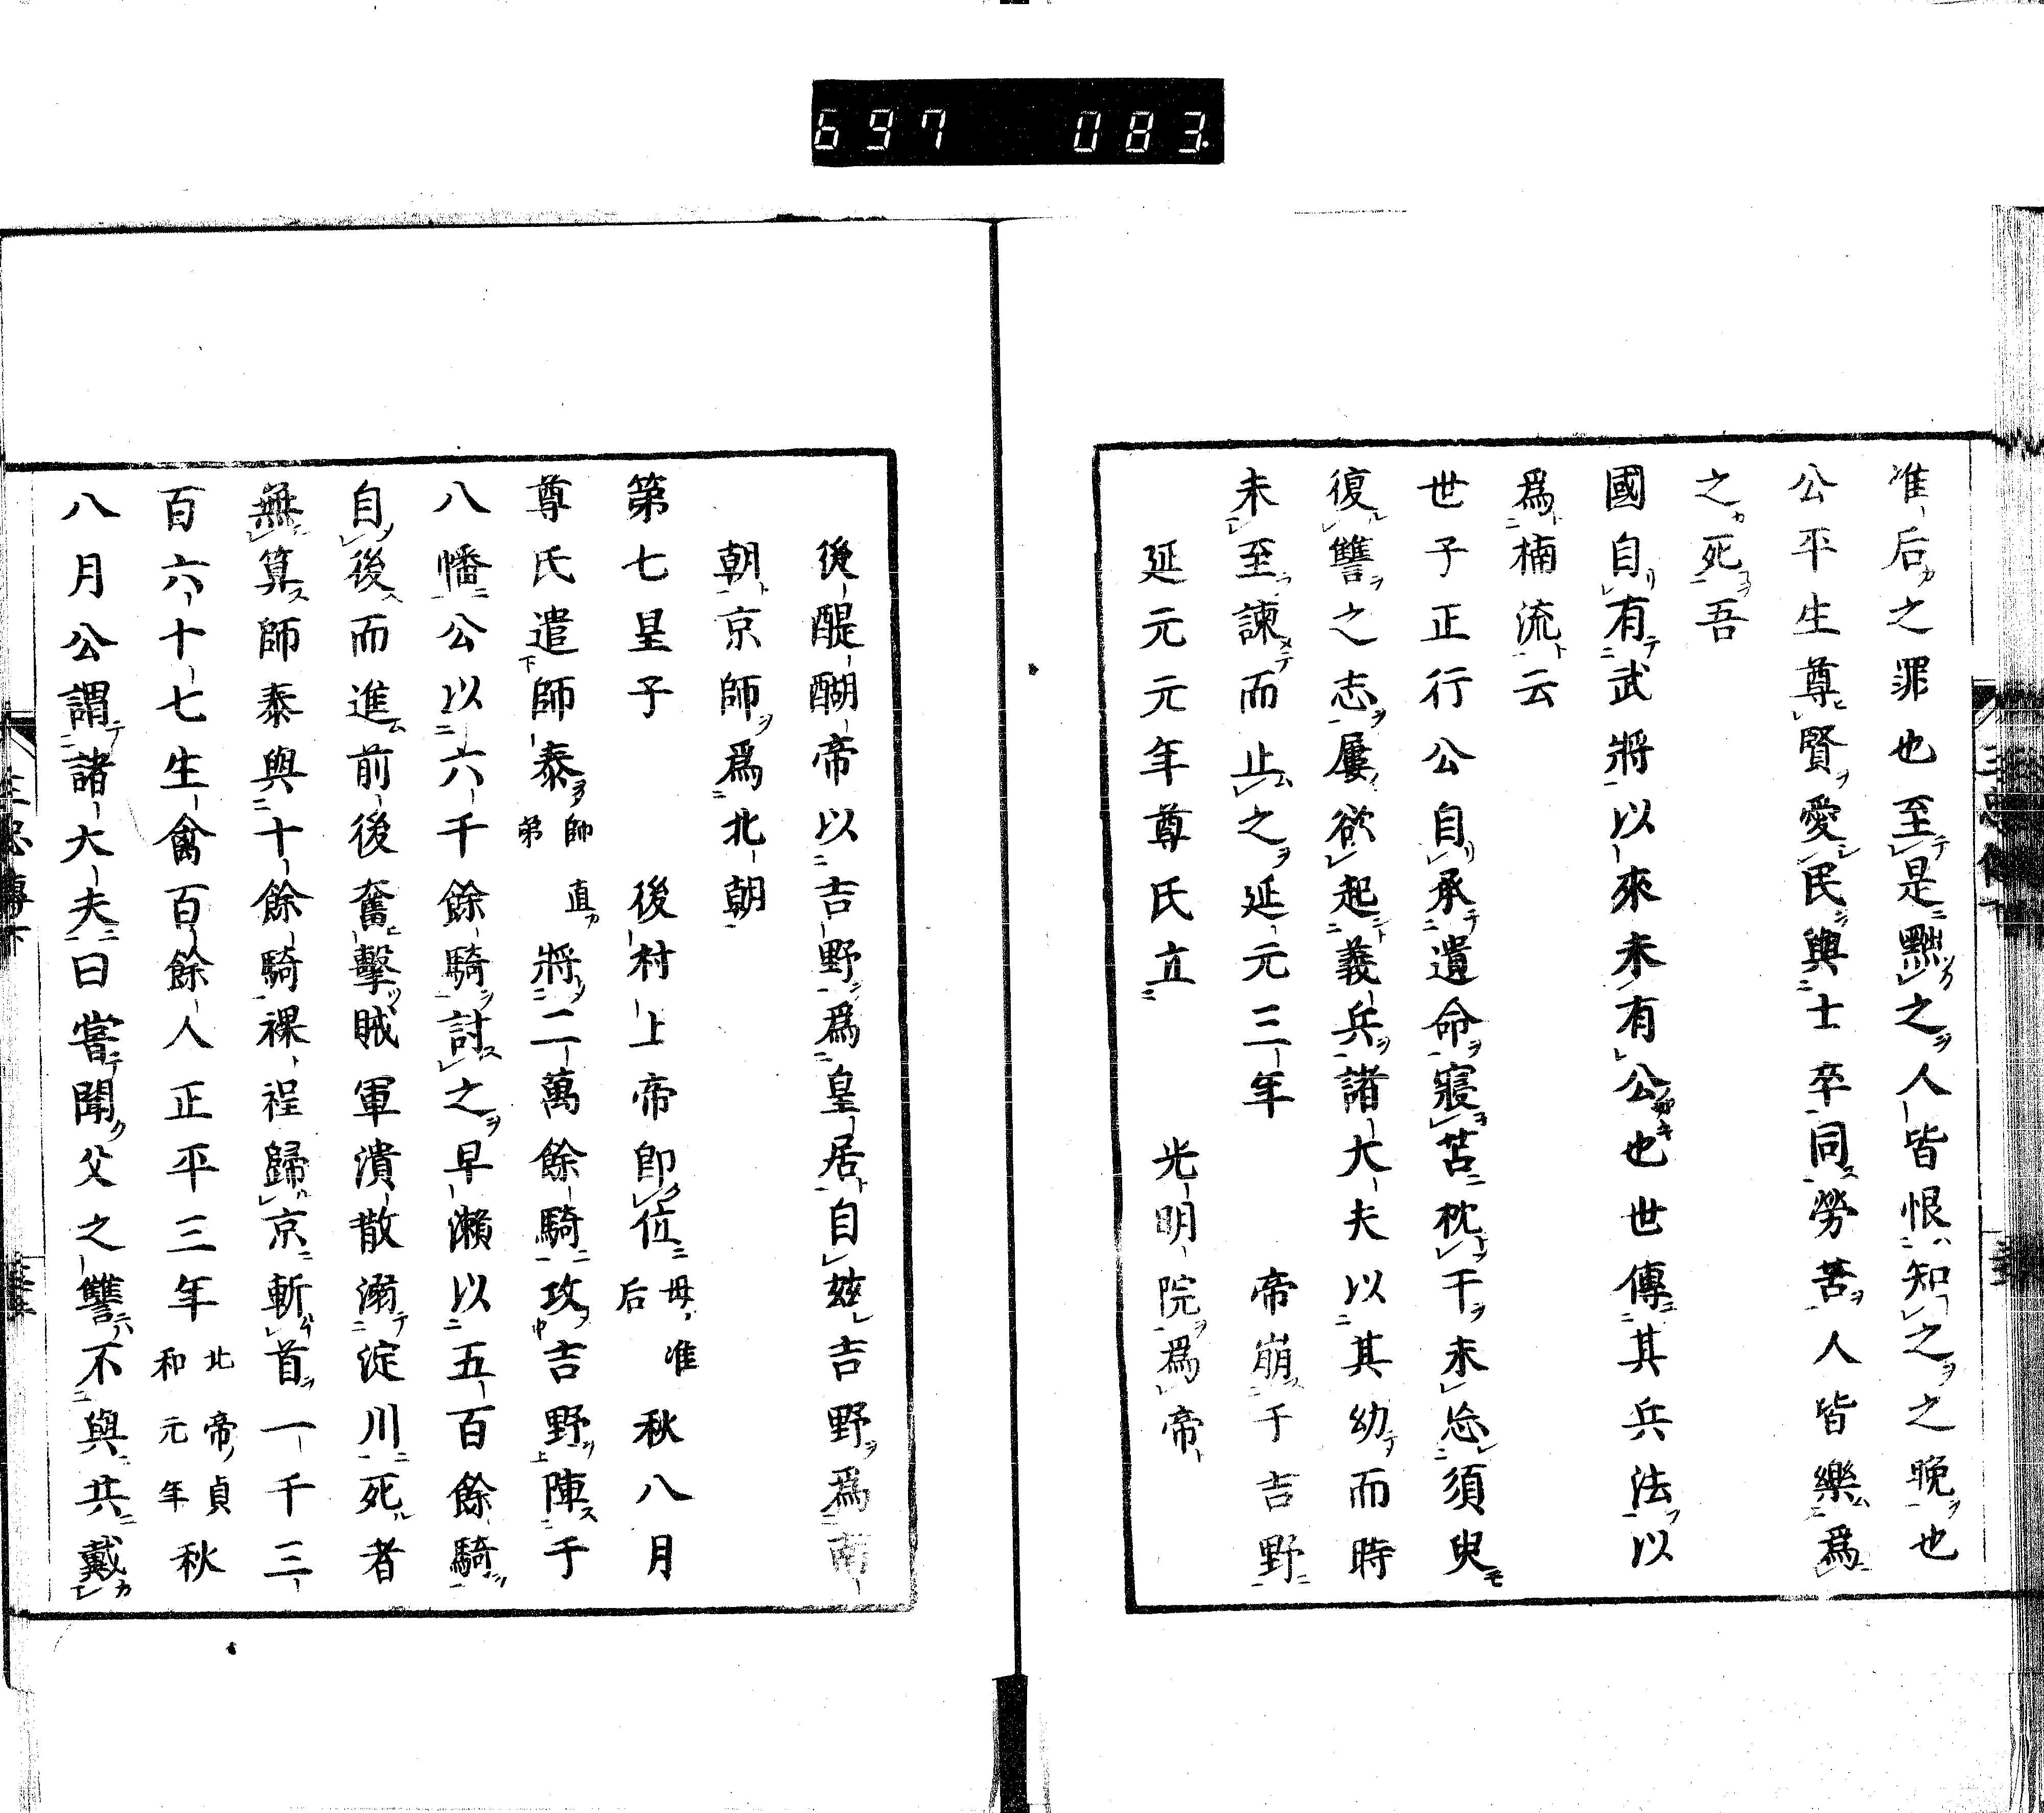 697 083.
准后之罪也至是黜之人皆恨知之之晩也
公平生尊賢愛民與士卒同勞苦人皆樂爲
之死吾
國自有武將以來未有公也世傳其兵法以
爲楠流云
世子正行公自承遺命寢苫枕干未忘須臾
復讐之志屢欲起義兵諸大夫以其幼而時
未至諫而止之延元三年帝崩于吉野
延元元年尊氏立光明院爲帝
後醍醐帝以吉野爲皇居自玆吉野爲南
朝京師爲北朝
第七皇子後村上帝即位母准后秋八月
尊氏遣師泰師直弟將二萬餘騎攻吉野陣于
八幡公以六千餘騎討之早瀬以五百餘騎
自後而進前後奮擊賊軍潰散溺淀川死者
無算師泰與十餘騎裸裎歸京斬首一千三
百六十七生禽百餘人正平三年北帝貞和元年秋
八月公謂諸大夫曰嘗聞父之讐不與共戴